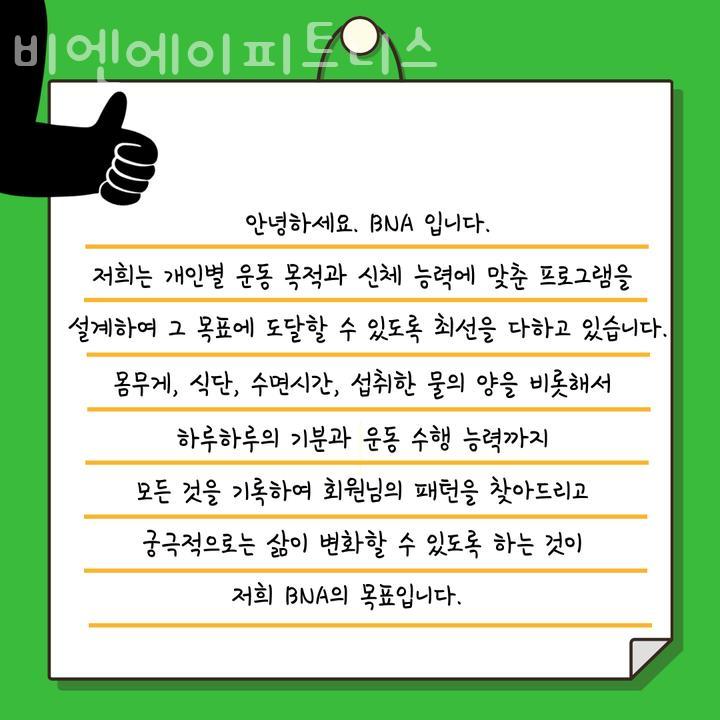 비엔에이피트니스
안녕하세요. BNA 입니다.
저희는 개인별 운동 목적과 신체 능력에 맞춘 프로그램을
설계하여 그 목표에 도달할 수 있도록 최선을 다하고 있습니다.
몸무게, 식단, 수면시간, 섭취한 물의 양을 비롯해서
하루하루의 기분과 운동 수행 능력까지
모든 것을 기록하여 회원님의 패턴을 찾아드리고
궁극적으로는 삶이 변화할 수 있도록 하는 것이
저희 BNA의 목표입니다.